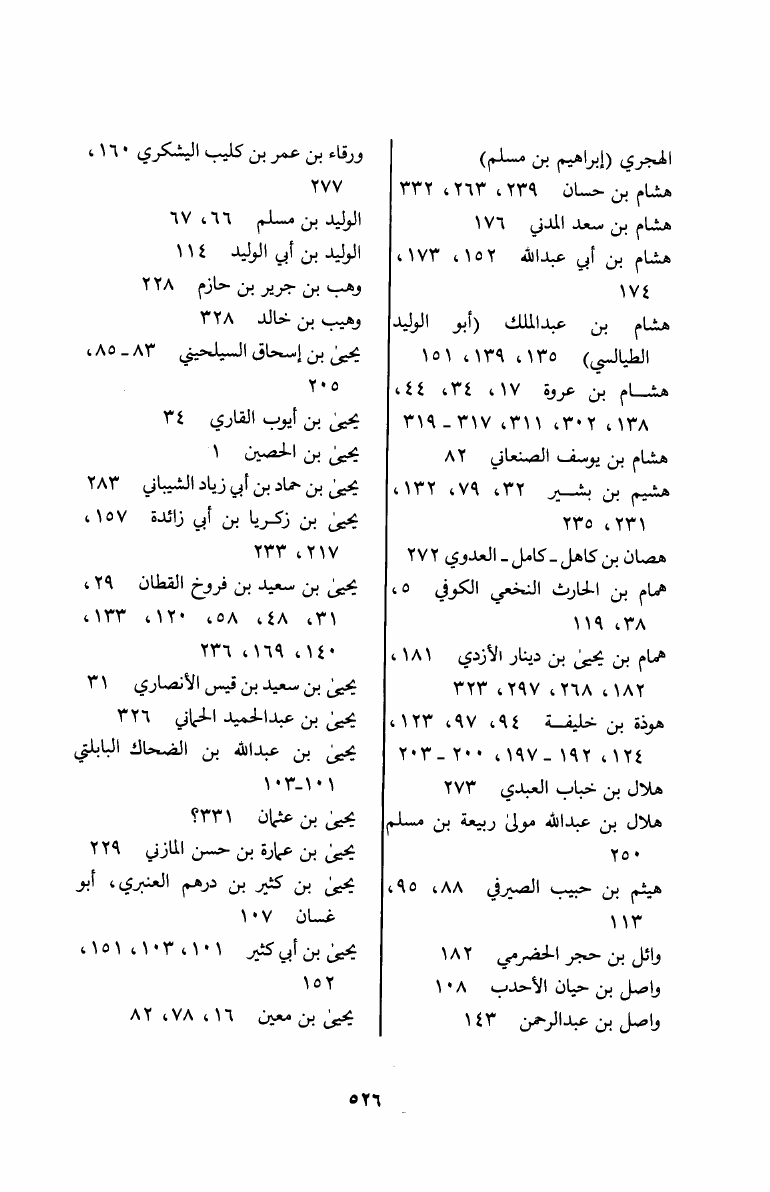 الهجري (إبراهيم بن مسلم)
هشام بن حسان ٢٣٩، ٢٦٣، ٣٣٢
هشام بن سعد المدني ١٧٦
هشام بن أبي عبدالله ١٥٢، ١٧٣،
١٧٤
هشام بن عبدالملك (أبو الوليد
الطيالسي) ١٣٥، ١٣٩، ١٥١
هشـــام بن عروة ١٧، ٣٤، ٤٤،
١٣٨، ٣٠٢، ٣١١، ٣١٧ - ٣١٩
هشام بن يوسف الصنعاني ٨٢
هشيم بن بشـــير ٣٢، ٧٩، ١٣٢،
٢٣١، ٢٣٥
هصان بن كاهل - كامل - العدوي ٢٧٢
همام بن الحارث النخعي الكوفي ٥،
٣٨، ١١٩
همام بن يحيىٰ بن دينار الأزدي ١٨١،
١٨٢، ٢٦٨، ٢٩٧، ٣٢٣
هوذة بن خليفـــة ٩٤، ٩٧، ١٢٣،
١٢٤، ١٩٢ - ١٩٧، ٢٠٠ - ٢٠٣
هلال بن خباب العبدي ٢٧٣
هلال بن عبدالله مولىٰ ربيعة بن مسلم
٢٥٠
هيثم بن حبيب الصيرفي ٨٨، ٩٥،
١١٣
وائل بن حجر الحضرمي ١٨٢
واصل بن حيان الأحدب ١٠٨
واصل بن عبدالرحمن ١٤٣
ورقاء بن عمر بن كليب اليشكري ١٦٠،
٢٧٧
الوليد بن مسلم ٦٦، ٦٧
الوليد بن أبي الوليد ١١٤
وهب بن جرير بن حازم ٢٢٨
وهيب بن خالد ٣٢٨
يحيىٰ بن إسحاق السيلحيني ٨٣ - ٨٥،
٢٠٥
يحيىٰ بن أيوب القاري ٣٤
يحيىٰ بن الحصين ١
يحيىٰ بن حماد بن أبي زياد الشيباني ٢٨٣
يحيىٰ بن زكـريا بن أبي زائدة ١٥٧،
٢١٧، ٢٣٣
يحيىٰ بن سعيد بن فروخ القطان ٢٩،
٣١، ٤٨، ٥٨، ١٢٠، ١٣٣،
١٤٠، ١٦٩، ٢٣٦
يحيىٰ بن سعيد بن قيس الأنصاري ٣١
يحيىٰ بن عبدالحميد الحماني ٣٢٦
يحيىٰ بن عبدالله بن الضحاك البابلتي
١٠١-١٠٣
يحيىٰ بن عثمان ٣٣١؟
يحيىٰ بن عمارة بن حسن المازني ٢٢٩
يحيىٰ بن كثير بن درهم العنبري، أبو
غسان ١٠٧
يحيىٰ بن أبي كثير ١٠١، ١٠٣، ١٥١،
١٥٢
يحيىٰ بن معين ١٦، ٧٨، ٨٢
٥٢٦